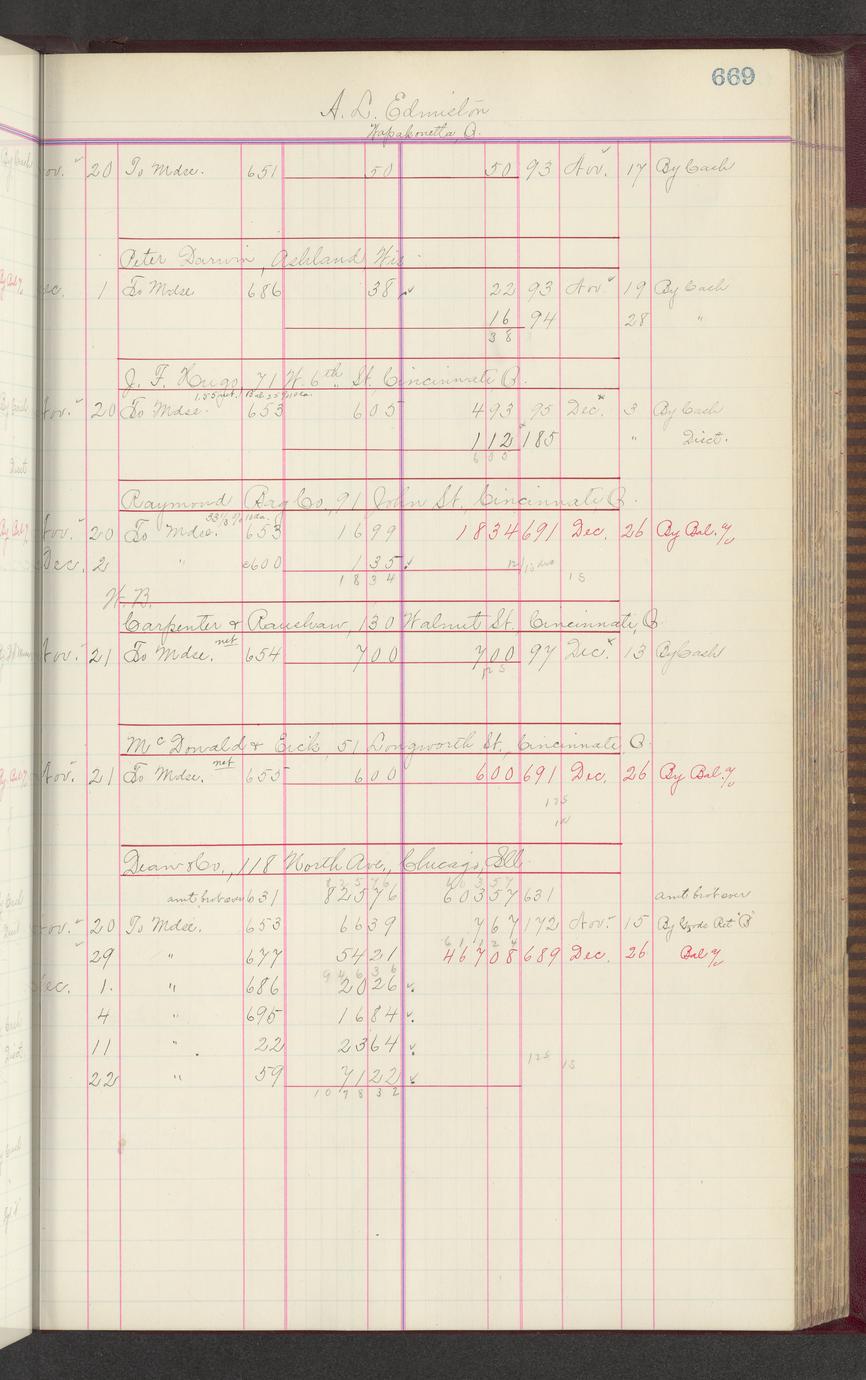 669
A. L. Edmiston
Wapakonetta, O.
ov. 20 To Mdse. 651 50 50 93 Nov. 17 By Cash
Peter Darwin, Ashland, Wis
ec. 1 To Mdse 686 38 22 93 Nov. 19 By Cash
16 94 28 "
38
J. F. Hugo, 71 W. 6th St., Cincinnati O.
Nov. 20 To Mdse. 653 605 493 95 Dec. 3 By Cash
112 185 " Disct.
605
Raymond Bag Co., 91 John St., Cincinnati O.
33 1/3 % 10 da.
Nov. 20 To Mdse. 653 1699 1834 691 Dec. 26 By Bal. %
Dec. 2 " c600 135
1834 15
W. B.
Carpenter & Raushaw, 130 Walnut St. Cincinnati, O.
Nov. 21 To Mdse. net 654 700 700 97 Dec. 13 By Cash
McDonald & Eick, 51 Longworth St., Cincinnati, O.
Nov. 21 To Mdse. net 655 600 600 691 Dec. 26 By Bal. %
125
Dean & Co., 118 North Ave., Chicago, Ill.
82576 60357
amt brot over 631 82576 60357 631 amt brot over
Nov. 20 To Mdse. 653 6639 767 172 Nov. 15 By Goods Ret "B"
61124
29 " 677 5421 46708 689 Dec. 26 Bal %
94636
Dec. 1. " 686 2026
4 " 695 1684
11 " 22 2364
125 15
22 " 59 7122
107832